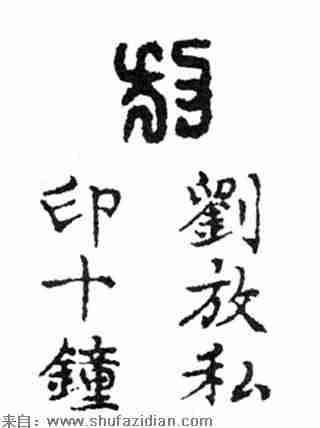 放
劉放私
印十鐘
来自：www.shufazidian.com